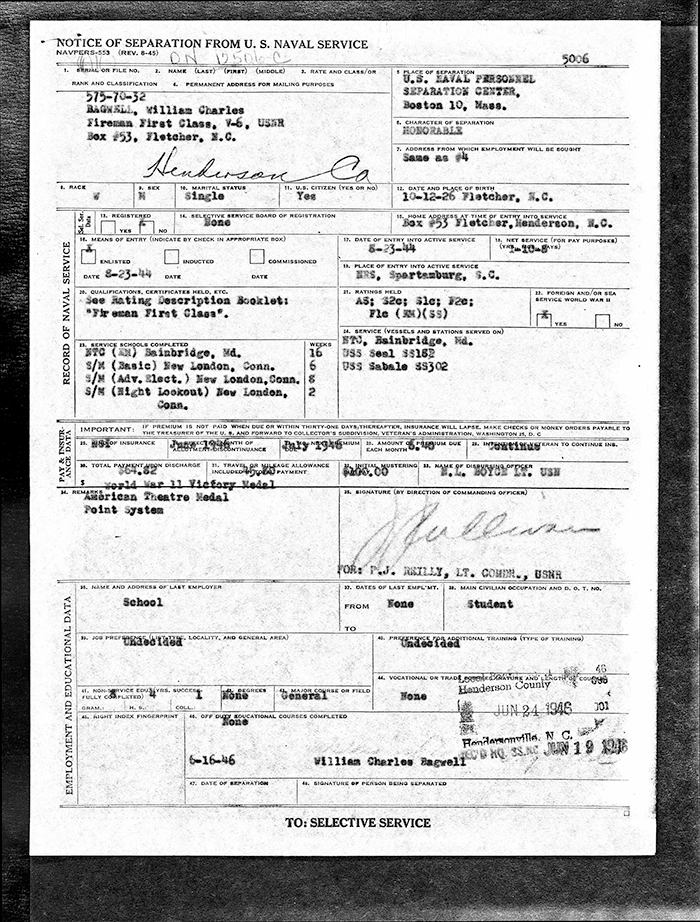 NOTICE OF SEPARATION FROM U. S. NAVAL SERVICE
NAVPERS-553 (REV. 8-45)
5006
1. SERIAL OR FILE NO. 2. NAME (LAST) (FIRST) (MIDDLE) 3. RATE AND CLASS/OR
RANK AND CLASSIFICATION 4. PERMANENT ADDRESS FOR MAILING PURPOSES
575-70-32
BAGWELL, William Charles
Fireman First Class, V-6, USNR
Box #53, Fletcher, N.C.
Henderson Co
5. PLACE OF SEPARATION
U.S. NAVAL PERSONNEL
SEPARATION CENTER,
Boston 10, Mass.
6. CHARACTER OF SEPARATION
HONORABLE
7. ADDRESS FROM WHICH EMPLOYMENT WILL BE SOUGHT
Same as #4
8. RACE 9. SEX 10. MARITAL STATUS 11. U.S. CITIZEN (YES OR NO) 12. DATE AND PLACE OF BIRTH
W M Single Yes 10-12-26 Fletcher, N.C.
Sel. Ser. Data
13. REGISTERED 14. SELECTIVE SERVICE BOARD OF REGISTRATION 15. HOME ADDRESS AT TIME OF ENTRY INTO SERVICE
YES X NO None Box #53 Fletcher, Henderson, N.C.
RECORD OF NAVAL SERVICE
16. MEANS OF ENTRY (INDICATE BY CHECK IN APPROPRIATE BOX)
X ENLISTED INDUCTED COMMISSIONED
DATE 8-23-44 DATE DATE
17. DATE OF ENTRY INTO ACTIVE SERVICE
8-23-44
18. NET SERVICE (FOR PAY PURPOSES)
19. PLACE OF ENTRY INTO ACTIVE SERVICE
NRS, Spartanburg, S.C.
20. QUALIFICATIONS, CERTIFICATES HELD, ETC.
See Rating Description Booklet:
"Fireman First Class".
21. RATINGS HELD
AS; S2c; S1c; F2c;
F1c (EM)(SS)
22. FOREIGN AND/OR SEA
SERVICE WORLD WAR II
X YES NO
23. SERVICE SCHOOLS COMPLETED WEEKS
NTC (EM) Bainbridge, Md. 16
S/M (Basic) New London, Conn. 6
S/M (Adv. Elect.) New London, Conn. 8
S/M (Night Lookout) New London, 2
Conn.
24. SERVICE (VESSELS AND STATIONS SERVED ON)
NTC, Bainbridge, Md.
USS Seal
USS Sabalo SS302
PAY & INSUR-
ANCE DATA
IMPORTANT: IF PREMIUM IS NOT PAID WHEN DUE OR WITHIN THIRTY-ONE DAYS THEREAFTER, INSURANCE WILL LAPSE. MAKE CHECKS OR MONEY ORDERS PAYABLE TO
THE TREASURER OF THE U. S. AND FORWARD TO COLLECTOR'S SUBDIVISION, VETERAN'S ADMINISTRATION, WASHINGTON 25, D. C
25. OF INSURANCE 26. MONTH OF ALLOTMENT DISCONTINUANCE 27. PREMIUM DUE 28. AMOUNT OF PREMIUM DUE EACH MONTH 29. INTENTION OF VETERAN TO CONTINUE INS.
NSL June 1946 July 1946 6.40 Continue
30. TOTAL PAYMENT UPON DISCHARGE 31. TRAVEL OR MILEAGE ALLOWANCE INCLUDED IN TOTAL PAYMENT 32. INITIAL MUSTERING 33. NAME OF DISBURSING OFFICER
$ $100.00 N.L. BOYCE LT. USN
34. REMARKS
World War 11 Victory Medal
American Theatre Medal
Point System
35. SIGNATURE (BY DIRECTION OF COMMANDING OFFICER)
FOR: P.J. REILLY, LT. COMDR., USNR
EMPLOYMENT AND EDUCATIONAL DATA
36. NAME AND ADDRESS OF LAST EMPLOYER
School
37. DATES OF LAST EMPL'MT.
FROM None
TO
38. MAIN CIVILIAN OCCUPATION AND D. O. T. NO.
Student
39. JOB PREFERENCE (LIST TYPE, LOCALITY, AND GENERAL AREA)
Undecided
40. PREFERENCE FOR ADDITIONAL TRAINING (TYPE OF TRAINING)
Undecided
41. NON-SERVICE EDUC. (YRS. SUCCESSFULLY COMPLETED) 42. DEGREES 43. MAJOR COURSE OR FIELD
8 4 1 None General
GRAM.: H. S.: COLL.
44. VOCATIONAL OR TRADE
None
Henderson County
JUN 24 1946
Hendersonville, N. C.
REC'D HQ. SS. NC JUN 19 1946
45. RIGHT INDEX FINGERPRINT
46. OFF DUTY EDUCATIONAL COURSES COMPLETED
None
6-16-46 William Charles Bagwell
47. DATE OF SEPARATION 48. SIGNATURE OF PERSON BEING SEPARATED
TO: SELECTIVE SERVICE